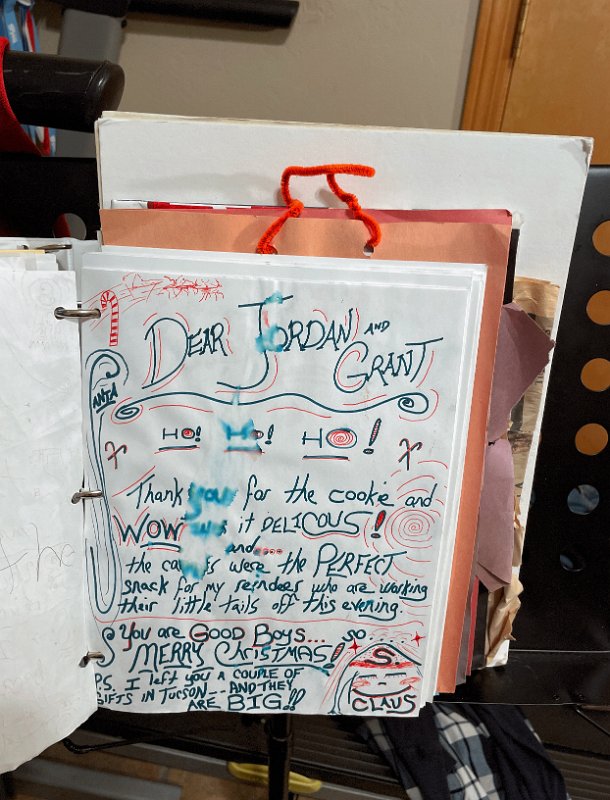 DEAR JORDAN AND
GRANT
HO! HO! HO!
Thank you for the cookie and
WOW was it DELICOUS!
and....
the carrots were the PERFECT
snack for my reindeer who are working
their little tails off this evening.
You are GOOD BOYS... so...
MERRY CHRISTMAS!
P.S. I LEFT YOU A COUPLE OF
GIFTS IN TUCSON-- AND THEY
ARE BIG!!
S.
CLAUS
the